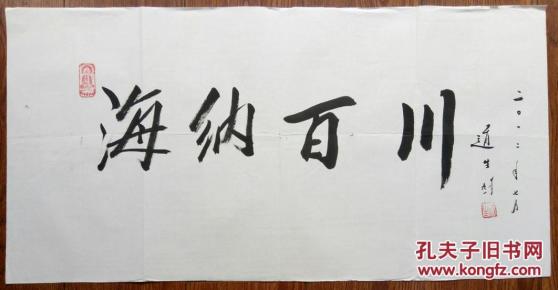 海纳百川
二〇一二年七月
道生
孔夫子旧书网
www.kongfz.com